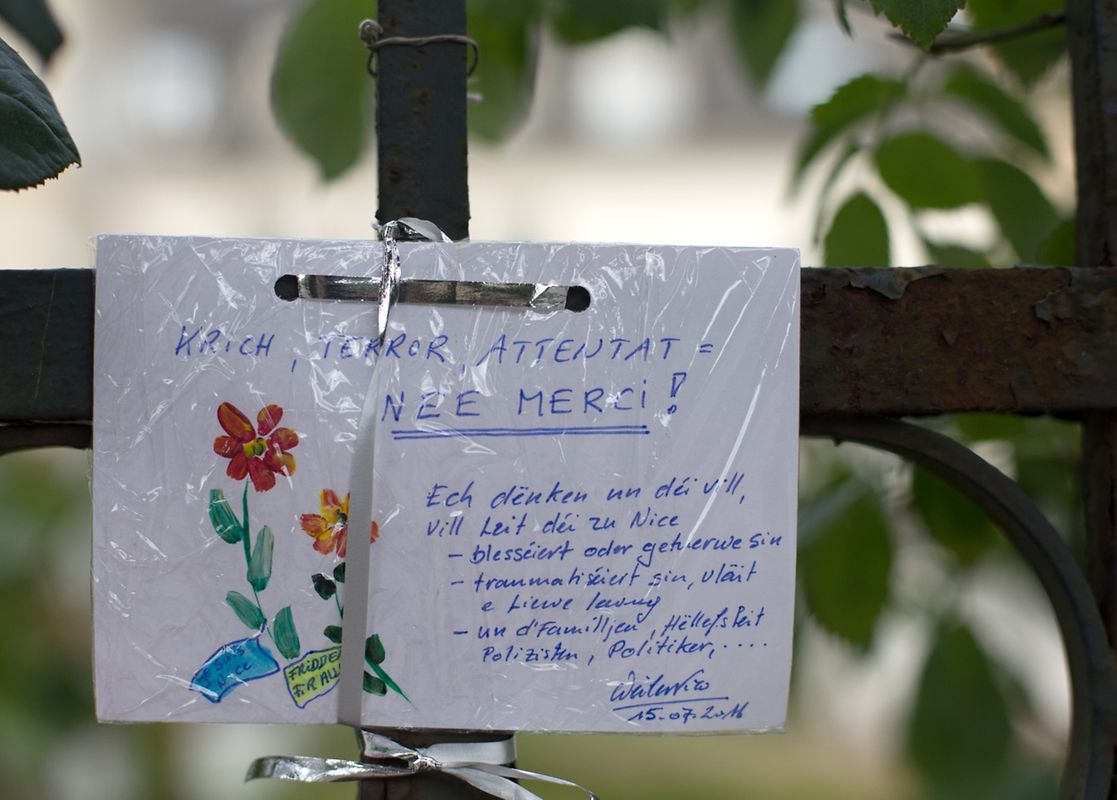 KRICH, TERROR, ATTENTAT =
NEE MERCI!
Ech dënken un déi vill,
vill Leit déi zu Nice
- blesséiert oder gestuerwe sin
- traumatiséiert sin, vläit
e Liewe laang
- un d'Familljen, Hëllefsleit
Polizisten, Politiker, ....
15.07.2016
Nice
FRIDDEN
FIR ALL